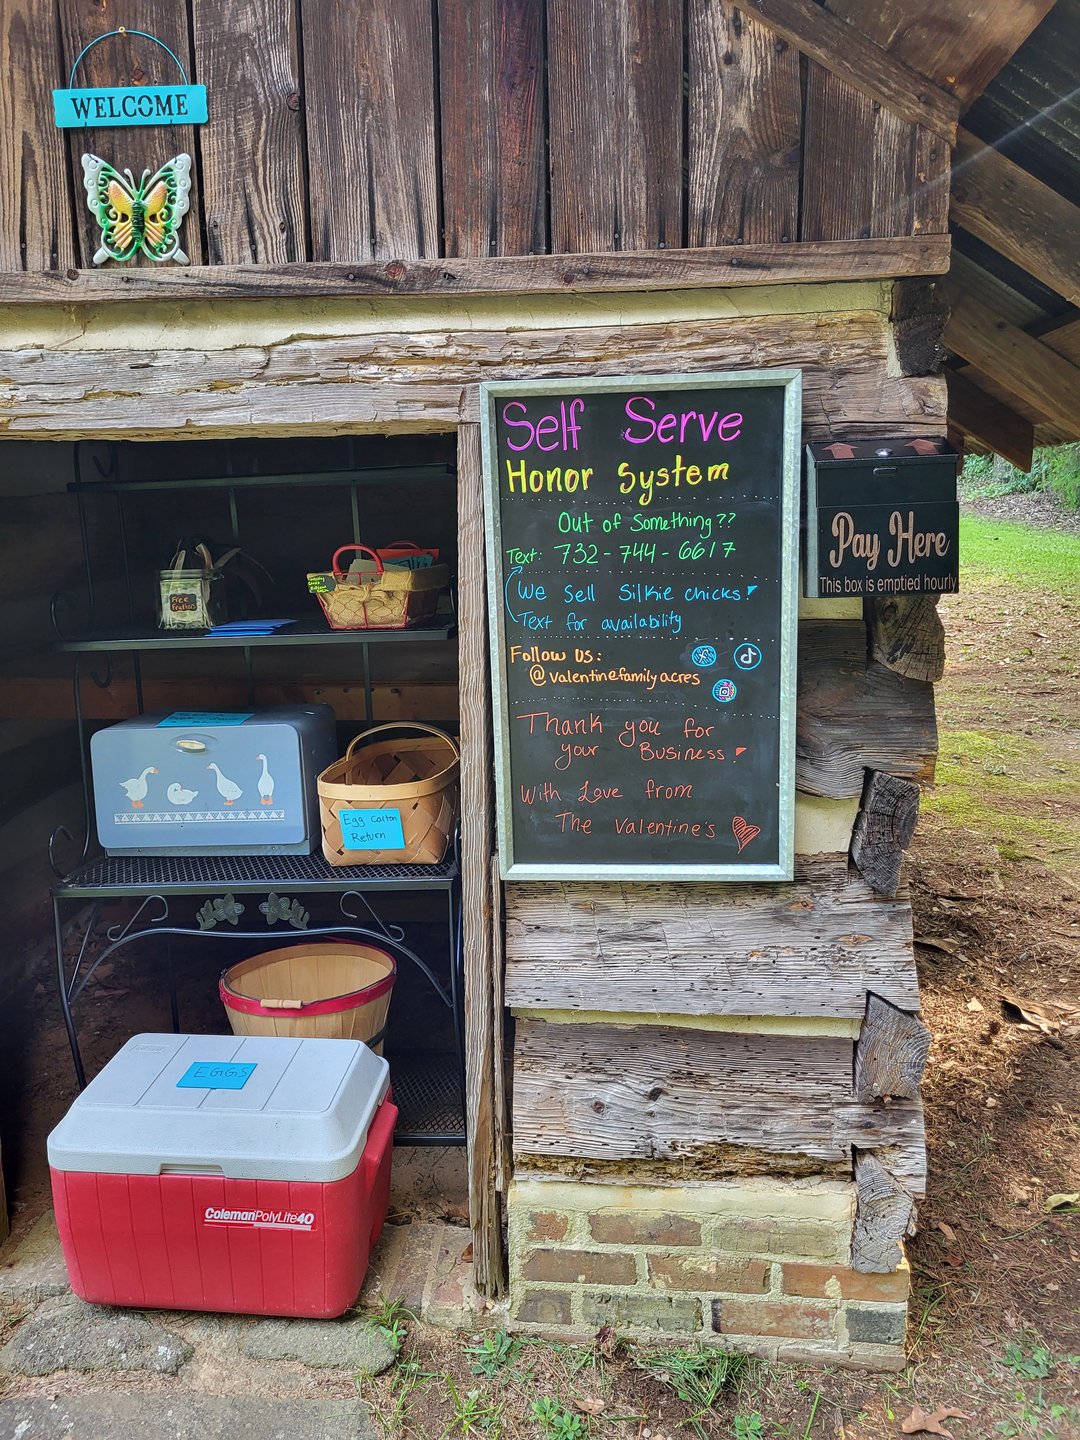 WELCOME
Self Serve
Honor System
Out of Something??
Text: 732-744-6617
We Sell Silkie chicks!
Text for availability
Follow Us:
@valentinefamilyacres
Thank you for
your Business!
With Love from
The Valentine's
Pay Here
This box is emptied hourly
Free
Feathers
Egg Carton
Return
EGGS
ColemanPolyLite40